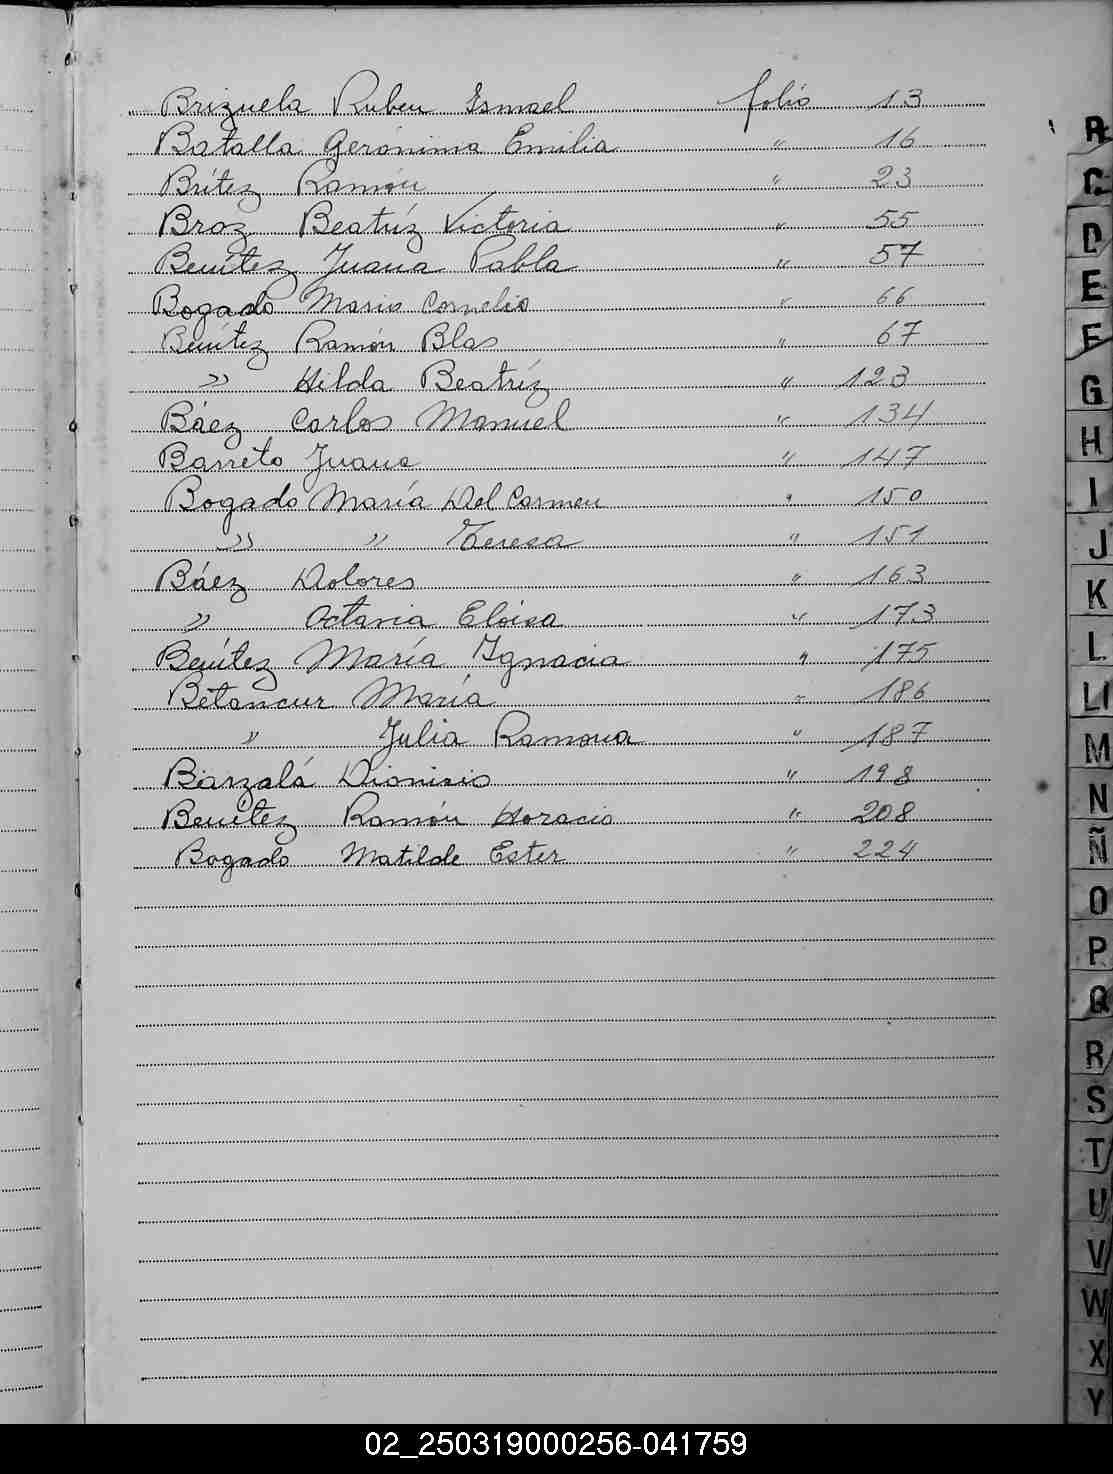 Brizuela Ruben Ismael folio 13
Batalla Gerónima Emilia " 16
Brítez Ramón " 23
Broz Beatríz Victoria " 55
Benítez Juana Pabla " 57
Bogado Mario Cornelio " 66
Benítez Ramón Blas " 67
" Hilda Beatríz " 123
Báez Carlos Manuel " 134
Barreto Juana " 147
Bogado María Del Carmen " 150
" " Teresa " 151
Báez Dolores " 163
" Octavia Eloisa " 173
Benítez María Ignacia " 175
Betancur María " 186
" Julia Ramona " 187
Barzalá Dionisio " 198
Benítez Ramón Horacio " 208
Bogado Matilde Ester " 224
C
D
E
F
G
H
I
J
K
L
Ll
M
N
Ñ
O
P
Q
R
S
T
U
V
W
X
Y
02_250319000256-041759